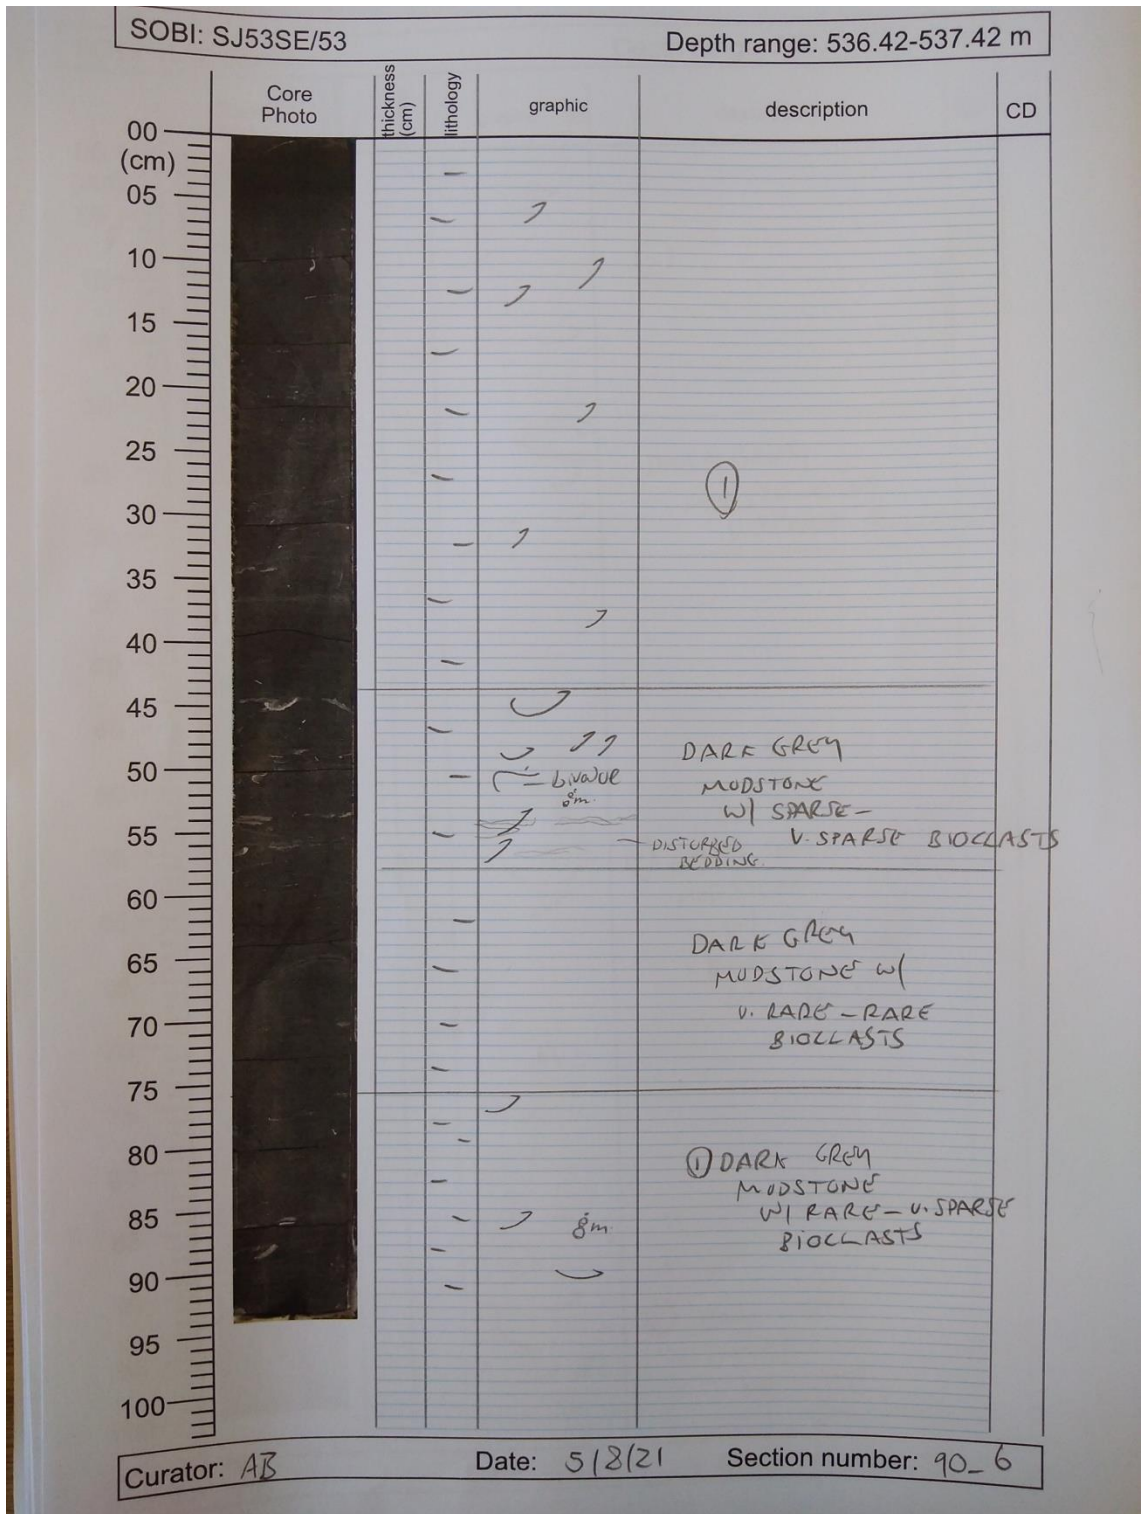 SOBI: SJ53SE/53
Depth range: 536.42-537.42 m
Core
Photo
thickness
(cm)
lithology
graphic
description
CD
00
(cm)
05
10
15
20
25
30
35
40
45
50
55
60
65
70
75
80
85
90
95
100
1
DARK GREY
MUDSTONE
W/ SPARSE-
V. SPARSE BIOCLASTS
bivalve
DISTURBED
BEDDING
DARK GREY
MUDSTONE W/
V. RARE - RARE
BIOCLASTS
1 DARK GREY
MUDSTONE
W/ RARE - V. SPARSE
BIOCLASTS
Curator: AB
Date: 5/8/21
Section number: 90_6